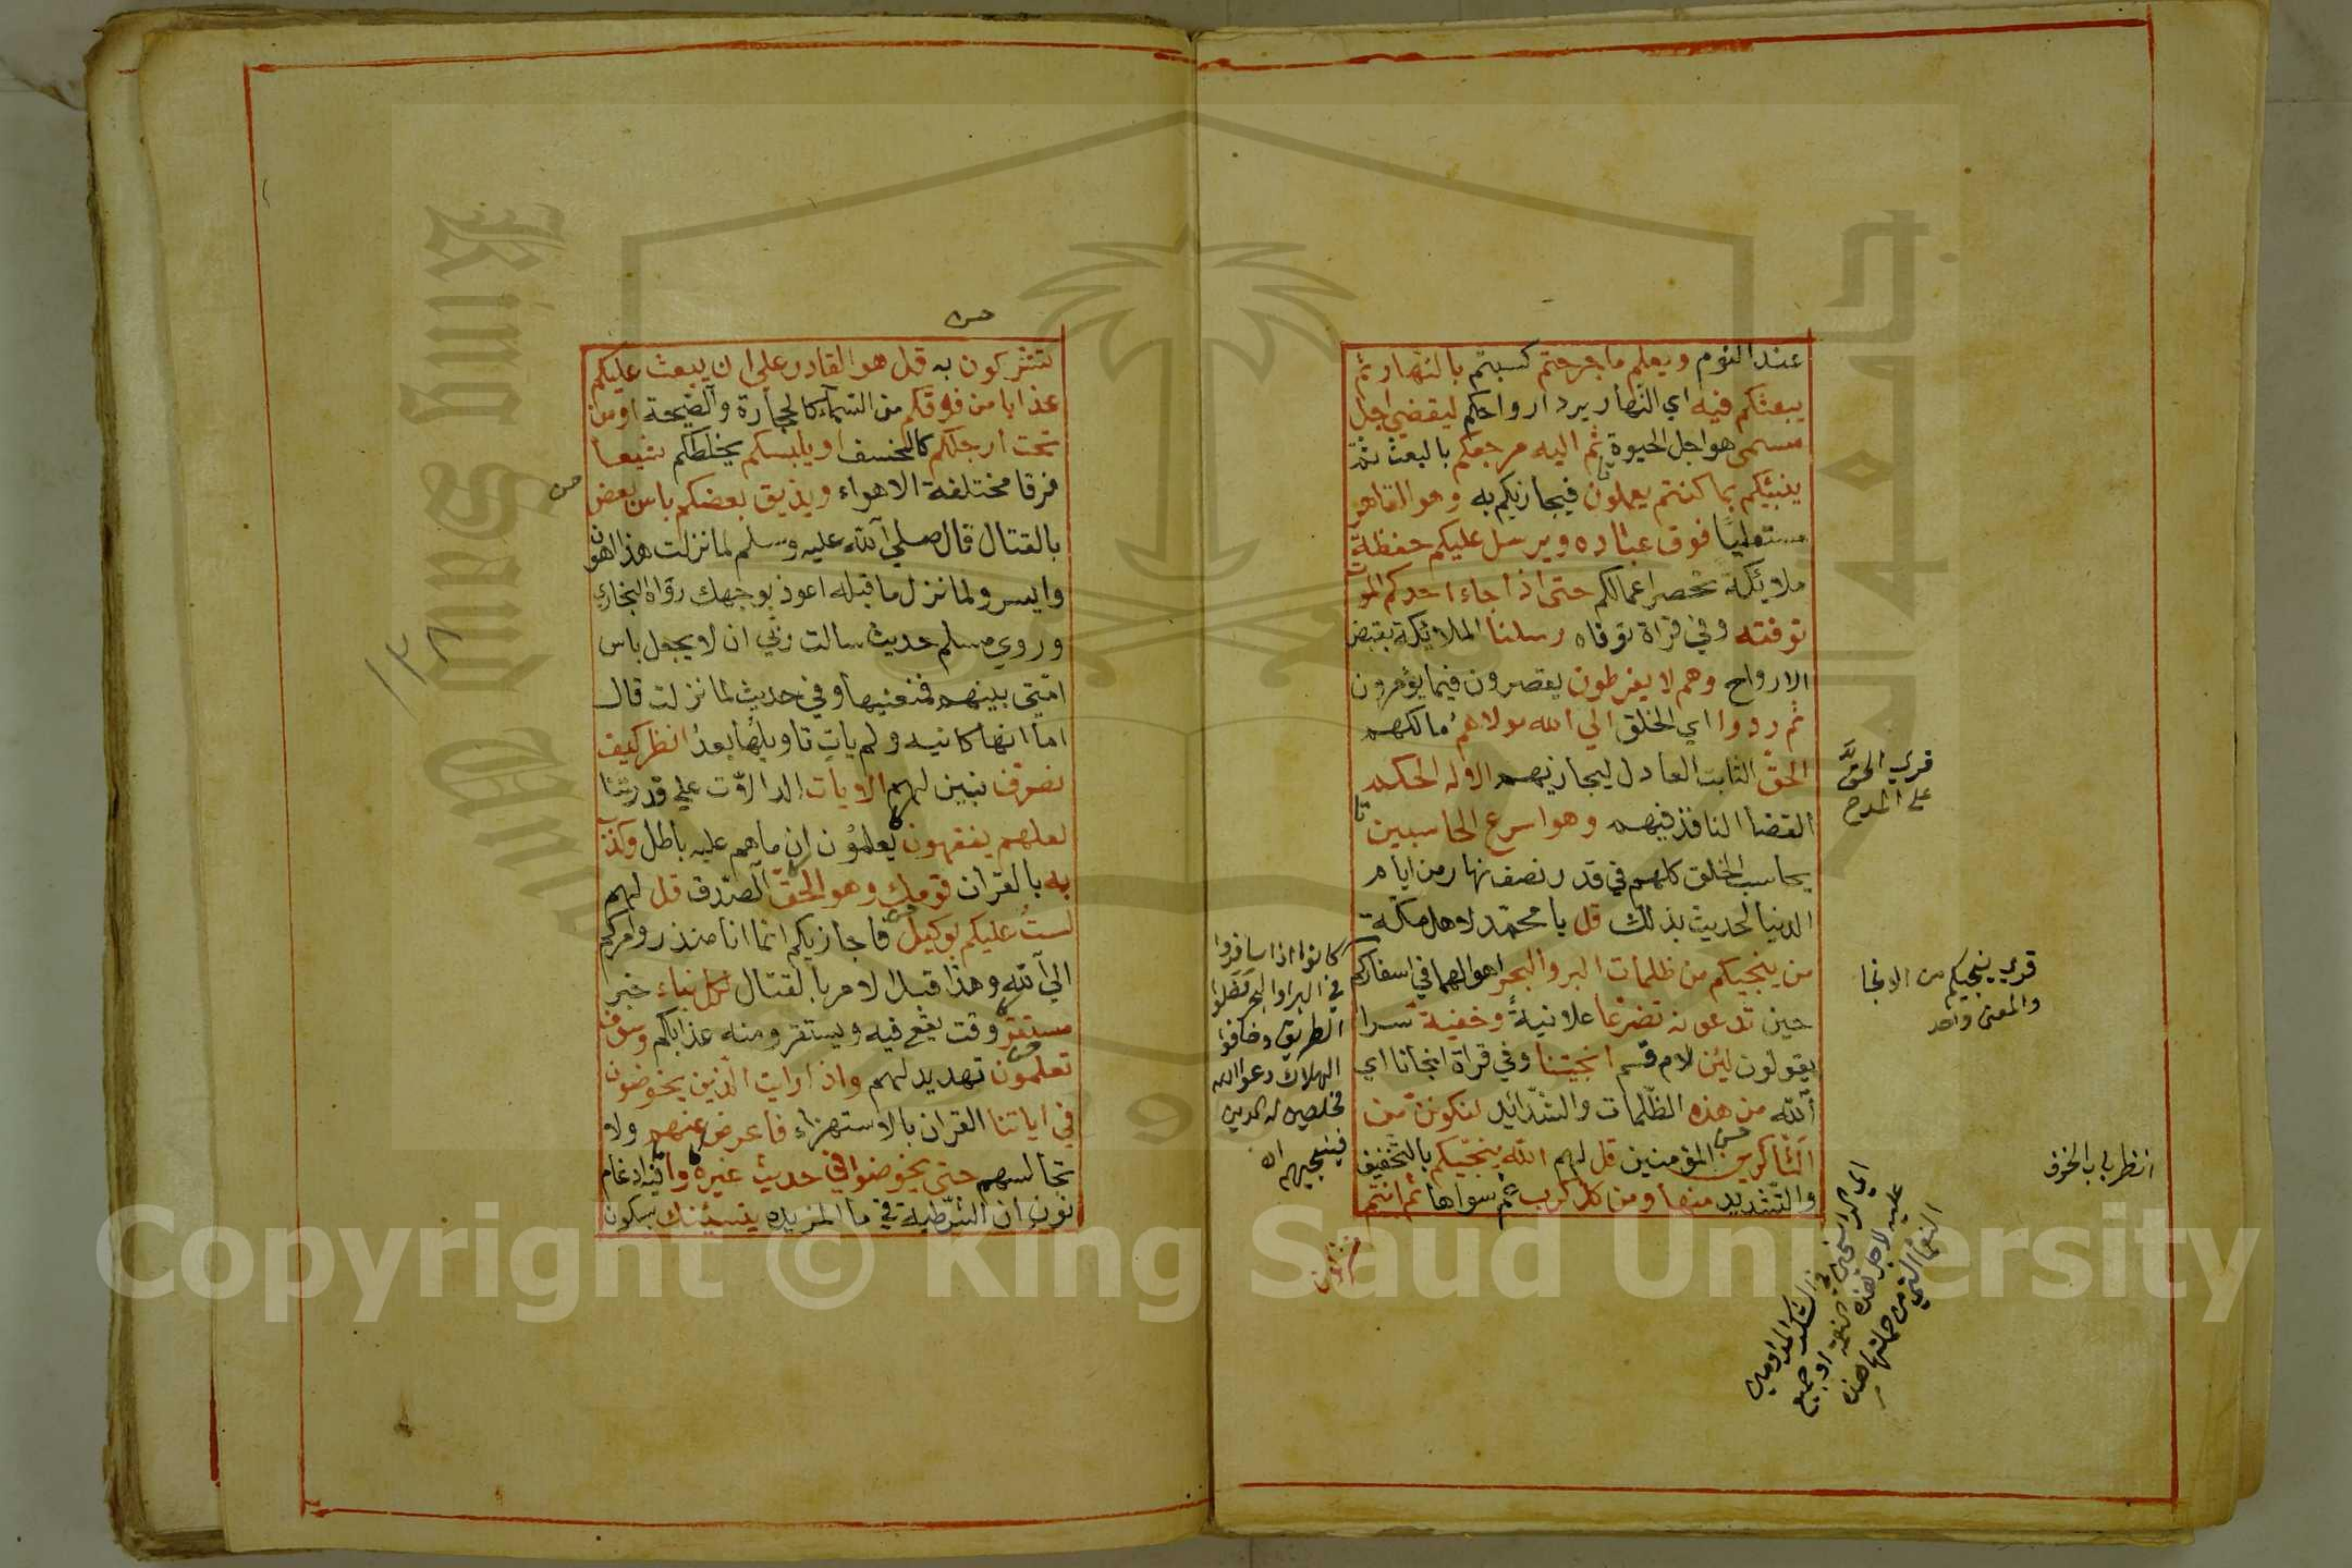 عند النوم ويعلم ما جرحتم كسبتم بالنهار ثم
يبعثكم فيه اي النهار يرد ارواحكم ليقضي اجل
مسمى هو اجل الحيوة ثم اليه مرجعكم بالبعث ثم
ينبئكم بما كنتم يعملون فيجازيكم به وهو القاهر
مستعليا فوق عباده ويرسل عليكم حفظة
ملايكة تحصر اعمالكم حتى اذا جاء احدكم الموت
توفته وفي قراة توفاه رسلنا الملايكة بقبض
الارواح وهم لا يفرطون يقصرون فيما يؤمرون
ثم ردوا اي الخلق الي الله مولاهم مالكهم
الحق الثابت العادل ليجازيهم الا له الحكم
القضا النافذ فيهم وهو اسرع الحاسبين
يحاسب الخلق كلهم في قدر نصف نهار من ايام
الدنيا لحديث بذلك قل يا محمد لاهل مكة
من ينجيكم من ظلمات البر والبحر اهوالهما في اسفاركم
حين تدعونه تضرعا علانية وخفية سرا
يقولون لين لام قسم انجيتنا وفي قراة انجانا اي
الله من هذه الظلمات والشدايد لنكونن من
الشاكرين المؤمنين قل لهم الله ينجيكم بالتخفيف
والتشديد منها ومن كل كرب غم سواها ثم انتم
قري الحق
على المدح
قري ينجيكم من الانجا
والمعنى واحد
انظر باب الخوف
كانوا اذا سافروا
في البر والبحر فضلوا
الطريق وخافوا
الهلاك دعوا الله
مخلصين له الدين
فينجيهم
تشركون
تشركون به قل هو القادر علي ان يبعث عليكم
عذابا من فوقكم من السماء كالحجارة والصيحة او من
تحت ارجلكم كالخسف او يلبسكم يخلطكم شيعا
فرقا مختلفة الاهواء ويذيق بعضكم باس بعض
بالقتال قال صلي الله عليه وسلم لما نزلت هذا اهون
وايسر ولما نزل ما قبله اعوذ بوجهك رواه البخاري
وروي مسلم حديث سالت ربي ان لا يجعل باس
امتي بينهم فمنعنيها وفي حديث لما نزلت قال
اما انها كاينة ولم يات تاويلها بعد انظر كيف
نصرف نبين لهم الايات الدالات علي قدرتنا
لعلهم يفقهون يعلمون ان ما هم عليه باطل وكذب
به بالقران قومك وهو الحق الصدق قل لهم
لست عليكم بوكيل فاجازيكم انما انا منذر وامركم
الي الله وهذا قبل الامر بالقتال لكل نباء خبر
مستقر وقت يقع فيه ويستقر ومنه عذابكم وسوف
تعلمون تهديد لهم واذا رايت الذين يخوضون
في اياتنا القران بالاستهزاء فاعرض عنهم ولا
تجالسهم حتى يخوضوا في حديث غيره واما فيه ادغام
نون ان الشرطية في ما المزيدة ينسينك بسكون
١٣٨
King Saud University
Copyright © King Saud University